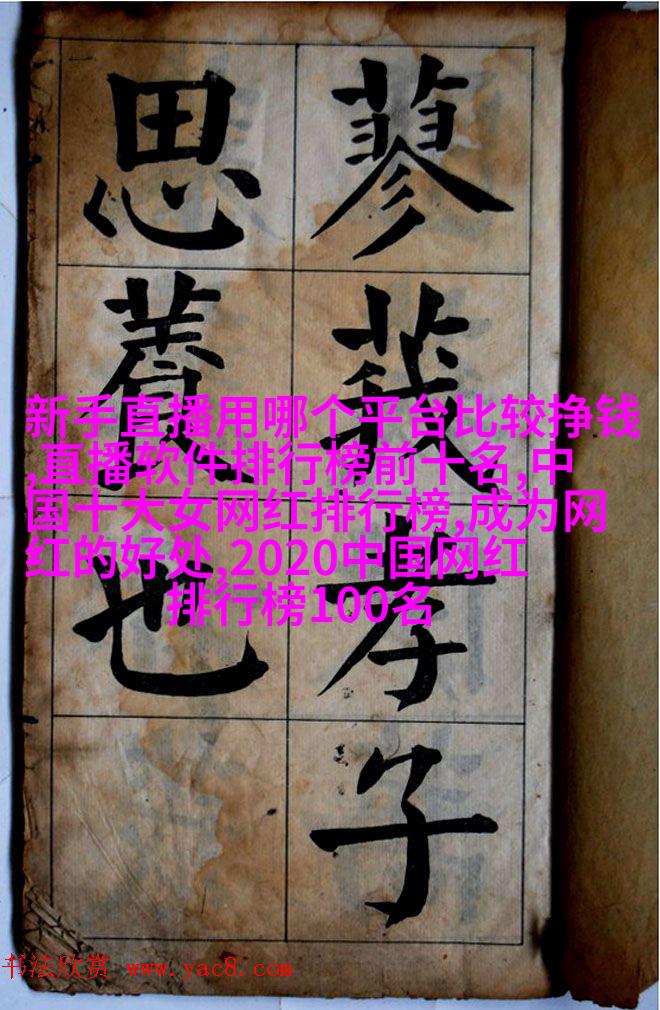 蓼莪孝子
思養也
新手直播用哪个平台比较挣钱
,直播软件排行榜前十名,中
国十大女网红排行榜,成为网
红的好处,2020中国网红
排行榜100名
书法欣赏 www.yac8.com